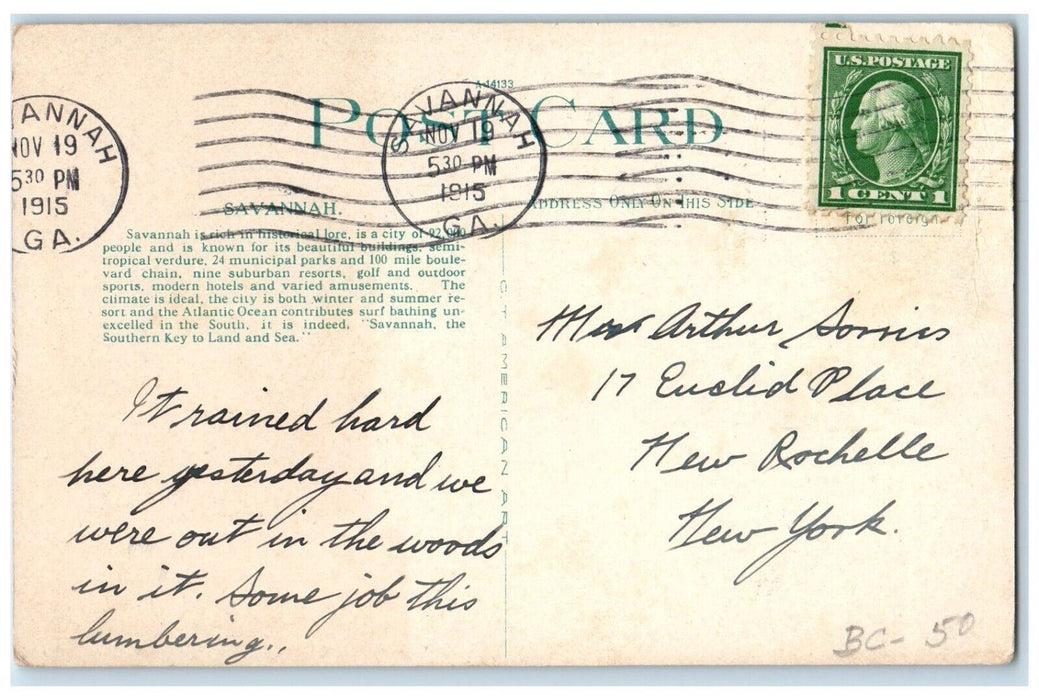 A-14133
POST CARD
SAVANNAH
NOV 19
5 30 PM
1915
GA.
SAVANNAH
NOV 19
5 30 PM
1915
GA.
U.S. POSTAGE
1 CENT 1
SAVANNAH.
ADDRESS ONLY ON THIS SIDE
Savannah is rich in historical lore, is a city of 92,000
people and is known for its beautiful buildings, semi-
tropical verdure, 24 municipal parks and 100 mile boule-
vard chain, nine suburban resorts, golf and outdoor
sports, modern hotels and varied amusements. The
climate is ideal, the city is both winter and summer re-
sort and the Atlantic Ocean contributes surf bathing un-
excelled in the South, it is indeed, "Savannah, the
Southern Key to Land and Sea."
It rained hard
here yesterday and we
were out in the woods
in it. Some job this
lumbering..
C T AMERICAN ART
Arthur
17 Euclid Place
New Rochelle
New York.
BC- 50